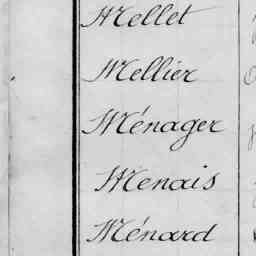 Mellet
Mellier
Ménager
Menais
Ménard